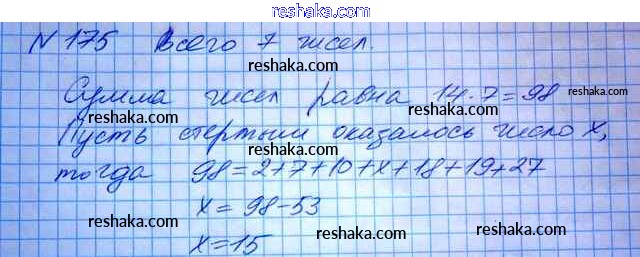 reshaka.com
N 175 Всего 7 чисел.
reshaka.com
reshaka.com
Сумма чисел равна 14·7=98
reshaka.com
Пусть стертым оказалось число x,
reshaka.com
тогда 98=2+7+10+x+18+19+27
reshaka.com
x = 98-53
reshaka.com
reshaka.com
x=15
reshaka.com